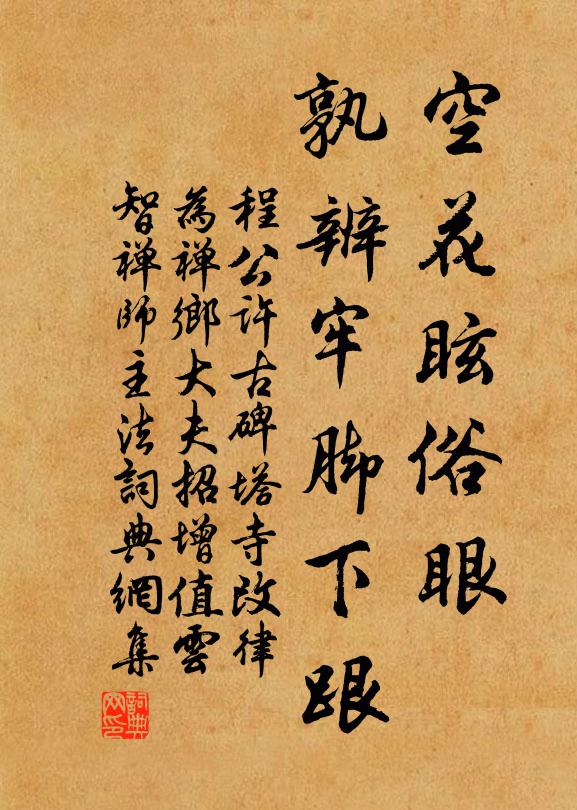 空花眩俗眼
孰辨牢脚下跟
程公許古碑塔寺改律
為禅鄉大夫招增值雲
智禅師主法詞典網集
詞典网印